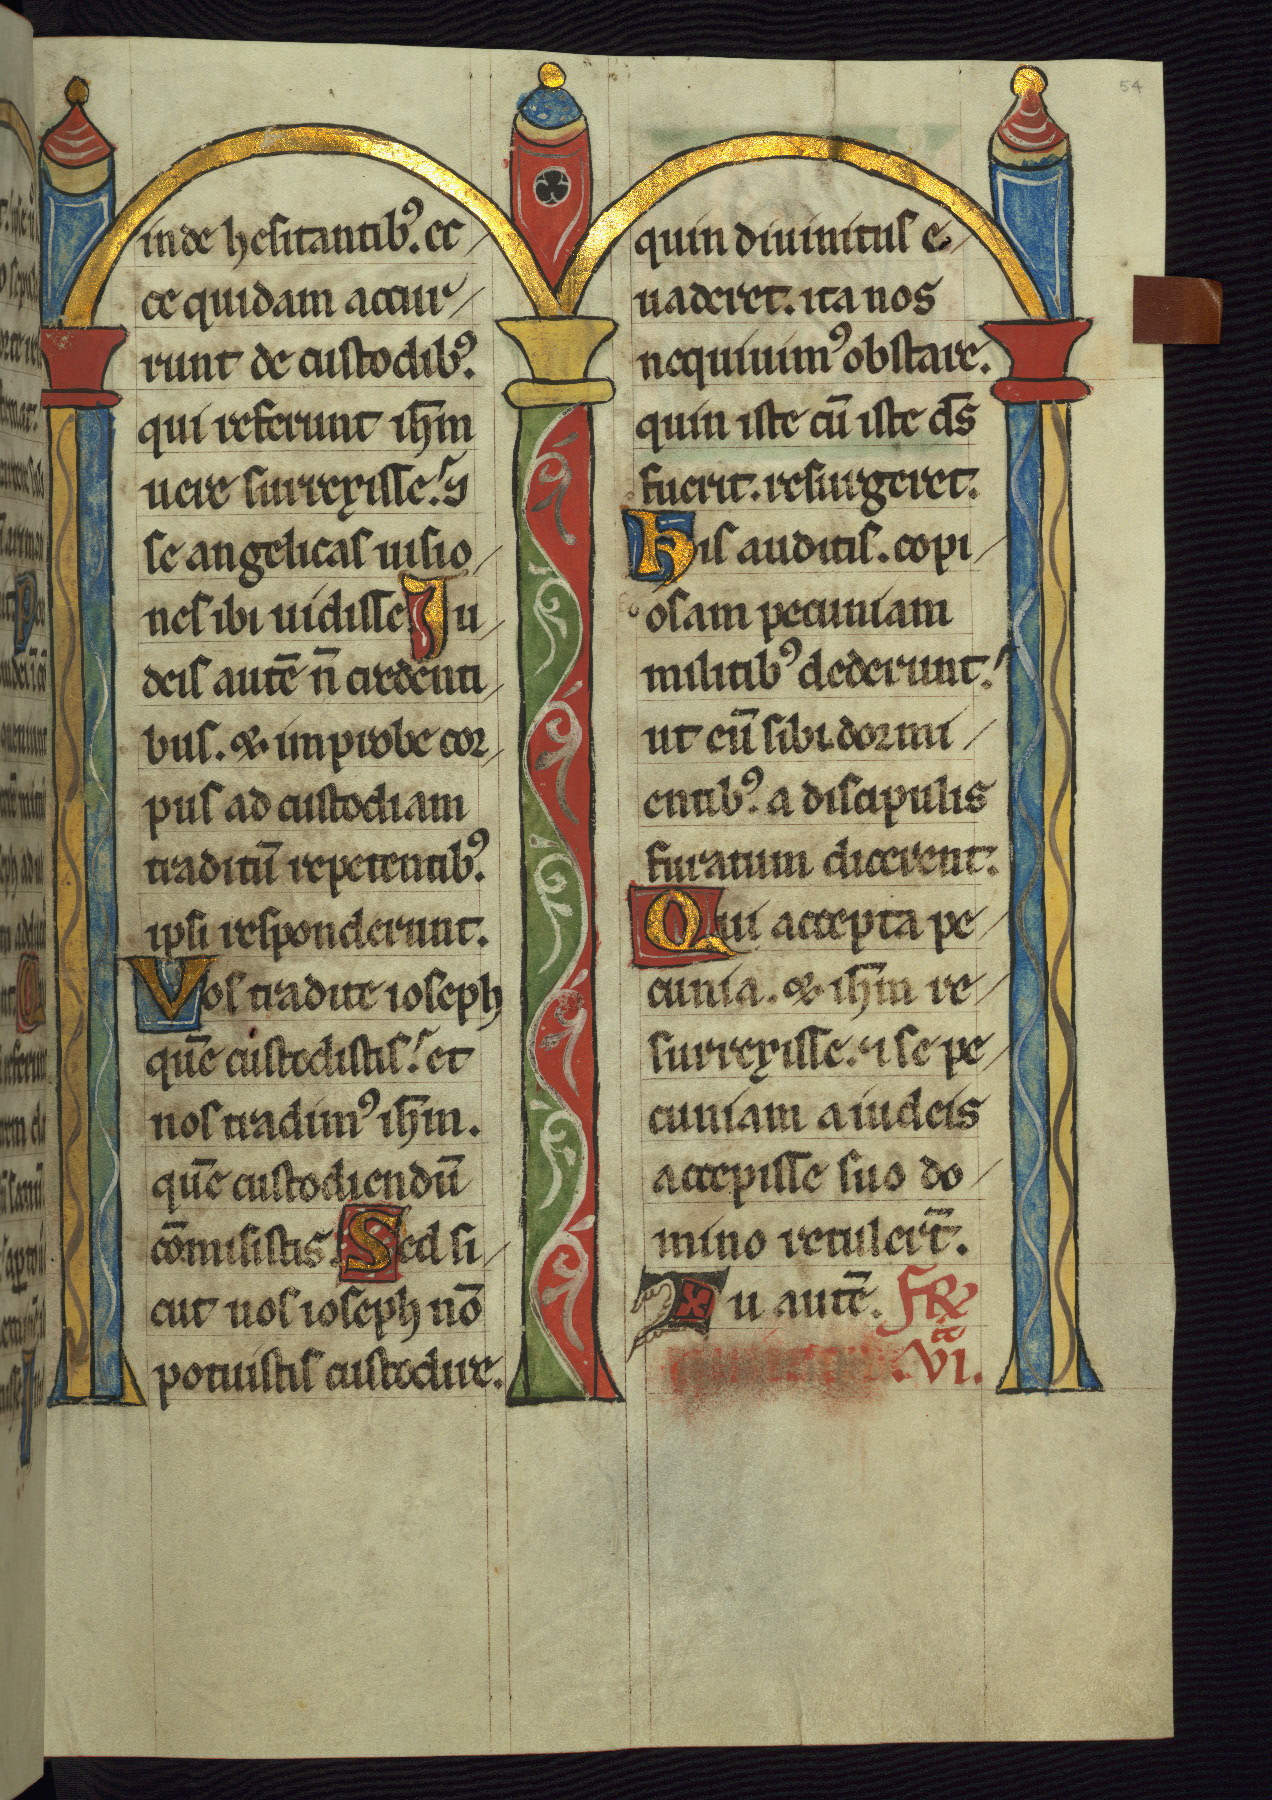 54
inde hesitantib9. ec
ce quidam accur
runt de custodib9.
qui referunt ih̄m
uere surrexisse. 
se angelicas uisio
nes ibi uidisse. Iu
deis autē n̄ credenti
bus. & improbe cor
pus ad custodiam
traditū repetentib9.
ipsi responderunt.
Vos tradite ioseph
quē custodistis. et
nos tradim9 ih̄m.
quē custodiendū
cōmisistis. Sed si
cut uos ioseph nō
potuistis custodire.
quin diuinitus e
uaderet. ita nos
nequiuim9 obstare.
quin iste cū iste d̄s
fuerit. resurgeret.
His auditis. copi
osam pecuniam
militib9 dederunt.
ut eū sibi dormi
entib9. a discipulis
furatum dicerent.
Qui accepta pe
cunia. & ih̄m re
surrexisse. & se pe
cuniam a iudeis
accepisse suo do
mino retulert̄.
Tu autē. FR
VI.